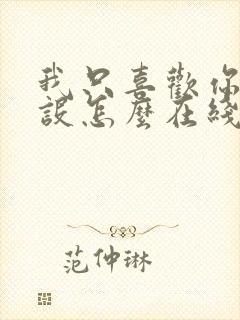 我只喜歡你
設怎麼在綫
范仲琳